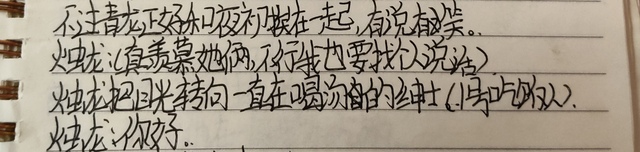 不过青龙正好和夜初聊在一起,有说有笑。
烛龙:(真羡慕她俩,不行我也要找个人说话)
烛龙把目光转向一直在喝汤的绅士(1号吃的人).
烛龙:你好。